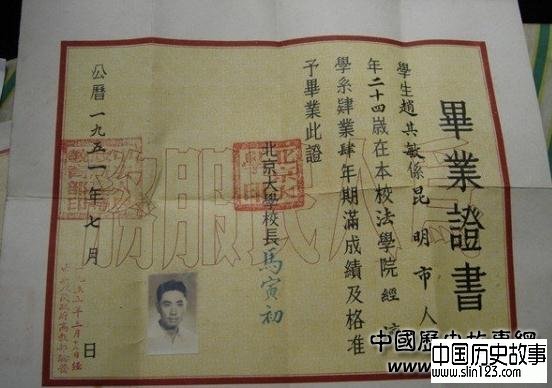 畢業證書
學生趙其敏係昆明市人
年二十四歲在本校法學院經濟
學系肄業肆年期滿成績及格准
予畢業此證
北京大學校長馬寅初
公曆一九五一年七月 日
為人民服務
中國歷史故事網
中国历史故事
www.slin123.com